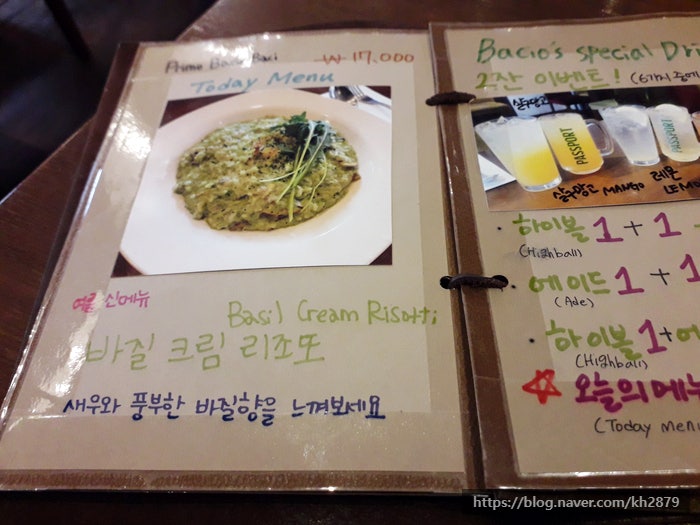 Prime Baci Baci
₩ 17,000
Today Menu
여름 신메뉴
Basil Cream Risotti
바질 크림 리조또
새우와 풍부한 바질향을 느껴보세요
Bacio's special Dri
2잔 이벤트! (6가지 중에
PASSPORT
PASSPORT
MANGO
레몬
LEM
· 하이볼 1 + 1
(Highball)
· 에이드 1 + 1
(Ade)
· 하이볼 1 + 에
(Highball)
☆ 오늘의 메뉴
(Today menu
https://blog.naver.com/kh2879